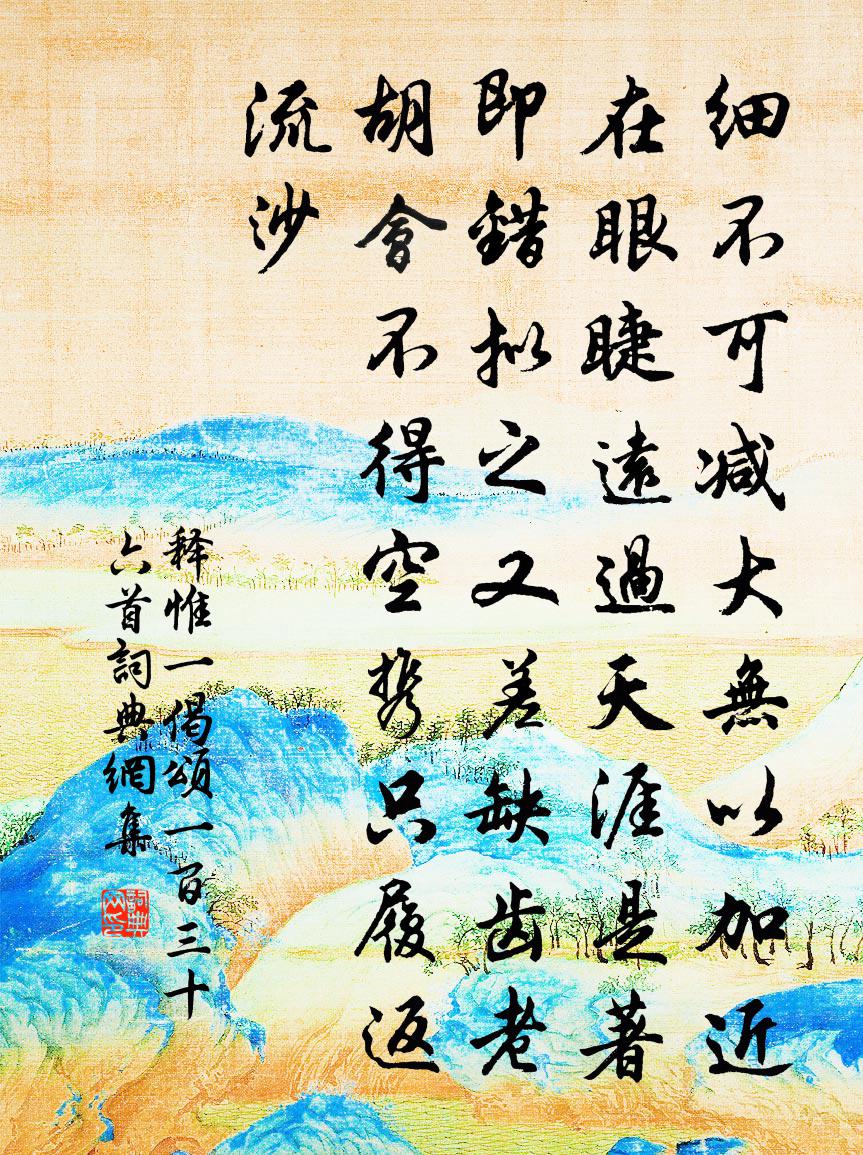 细不可减大無以加近
在眼睫遠過天涯是著
即錯拟之又差缺齿老
胡會不得空携只履返
流沙
释惟一偈頌一百三十
六首詞典網集